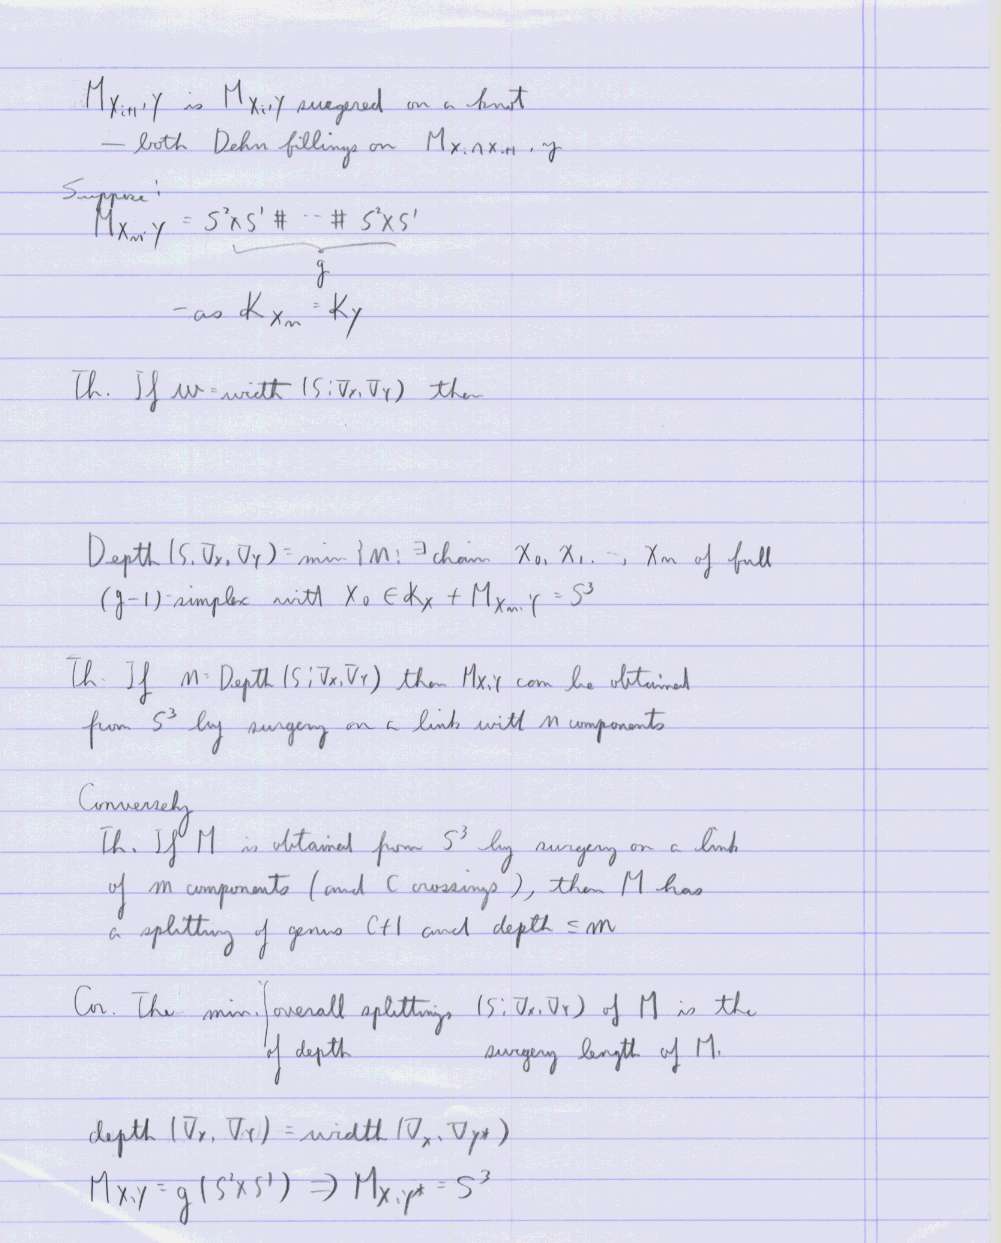 M_{X_{i+1},Y} is M_{X_i,Y} surgered on a knot
— both Dehn fillings on M_{X_i∩X_{i+1},Y}
Suppose:
M_{X_n,Y} = S²×S¹ # -- # S²×S¹
g
- as K_{X_n} = K_Y
Th. If w = width (S; V_X, V_Y) then
Depth (S, V_X, V_Y) = min {n: ∃ chain X_0, X_1, .., X_n of full
(g-1)-simplex with X_0 ∈ K_X + M_{X_n,Y} = S³
Th. If n = Depth (S; V_X, V_Y) then M_{X,Y} can be obtained
from S³ by surgery on a link with n components
Conversely
Th. If M is obtained from S³ by surgery on a link
of m components (and C crossings), then M has
a splitting of genus C+1 and depth ≤ m
Cor. The min. of depth over all splittings (S; V_X, V_Y) of M is the
surgery length of M.
depth (V_X, V_Y) = width (V_X, V_{Y*})
M_{X,Y} = g(S²×S¹) ⇒ M_{X,Y*} = S³